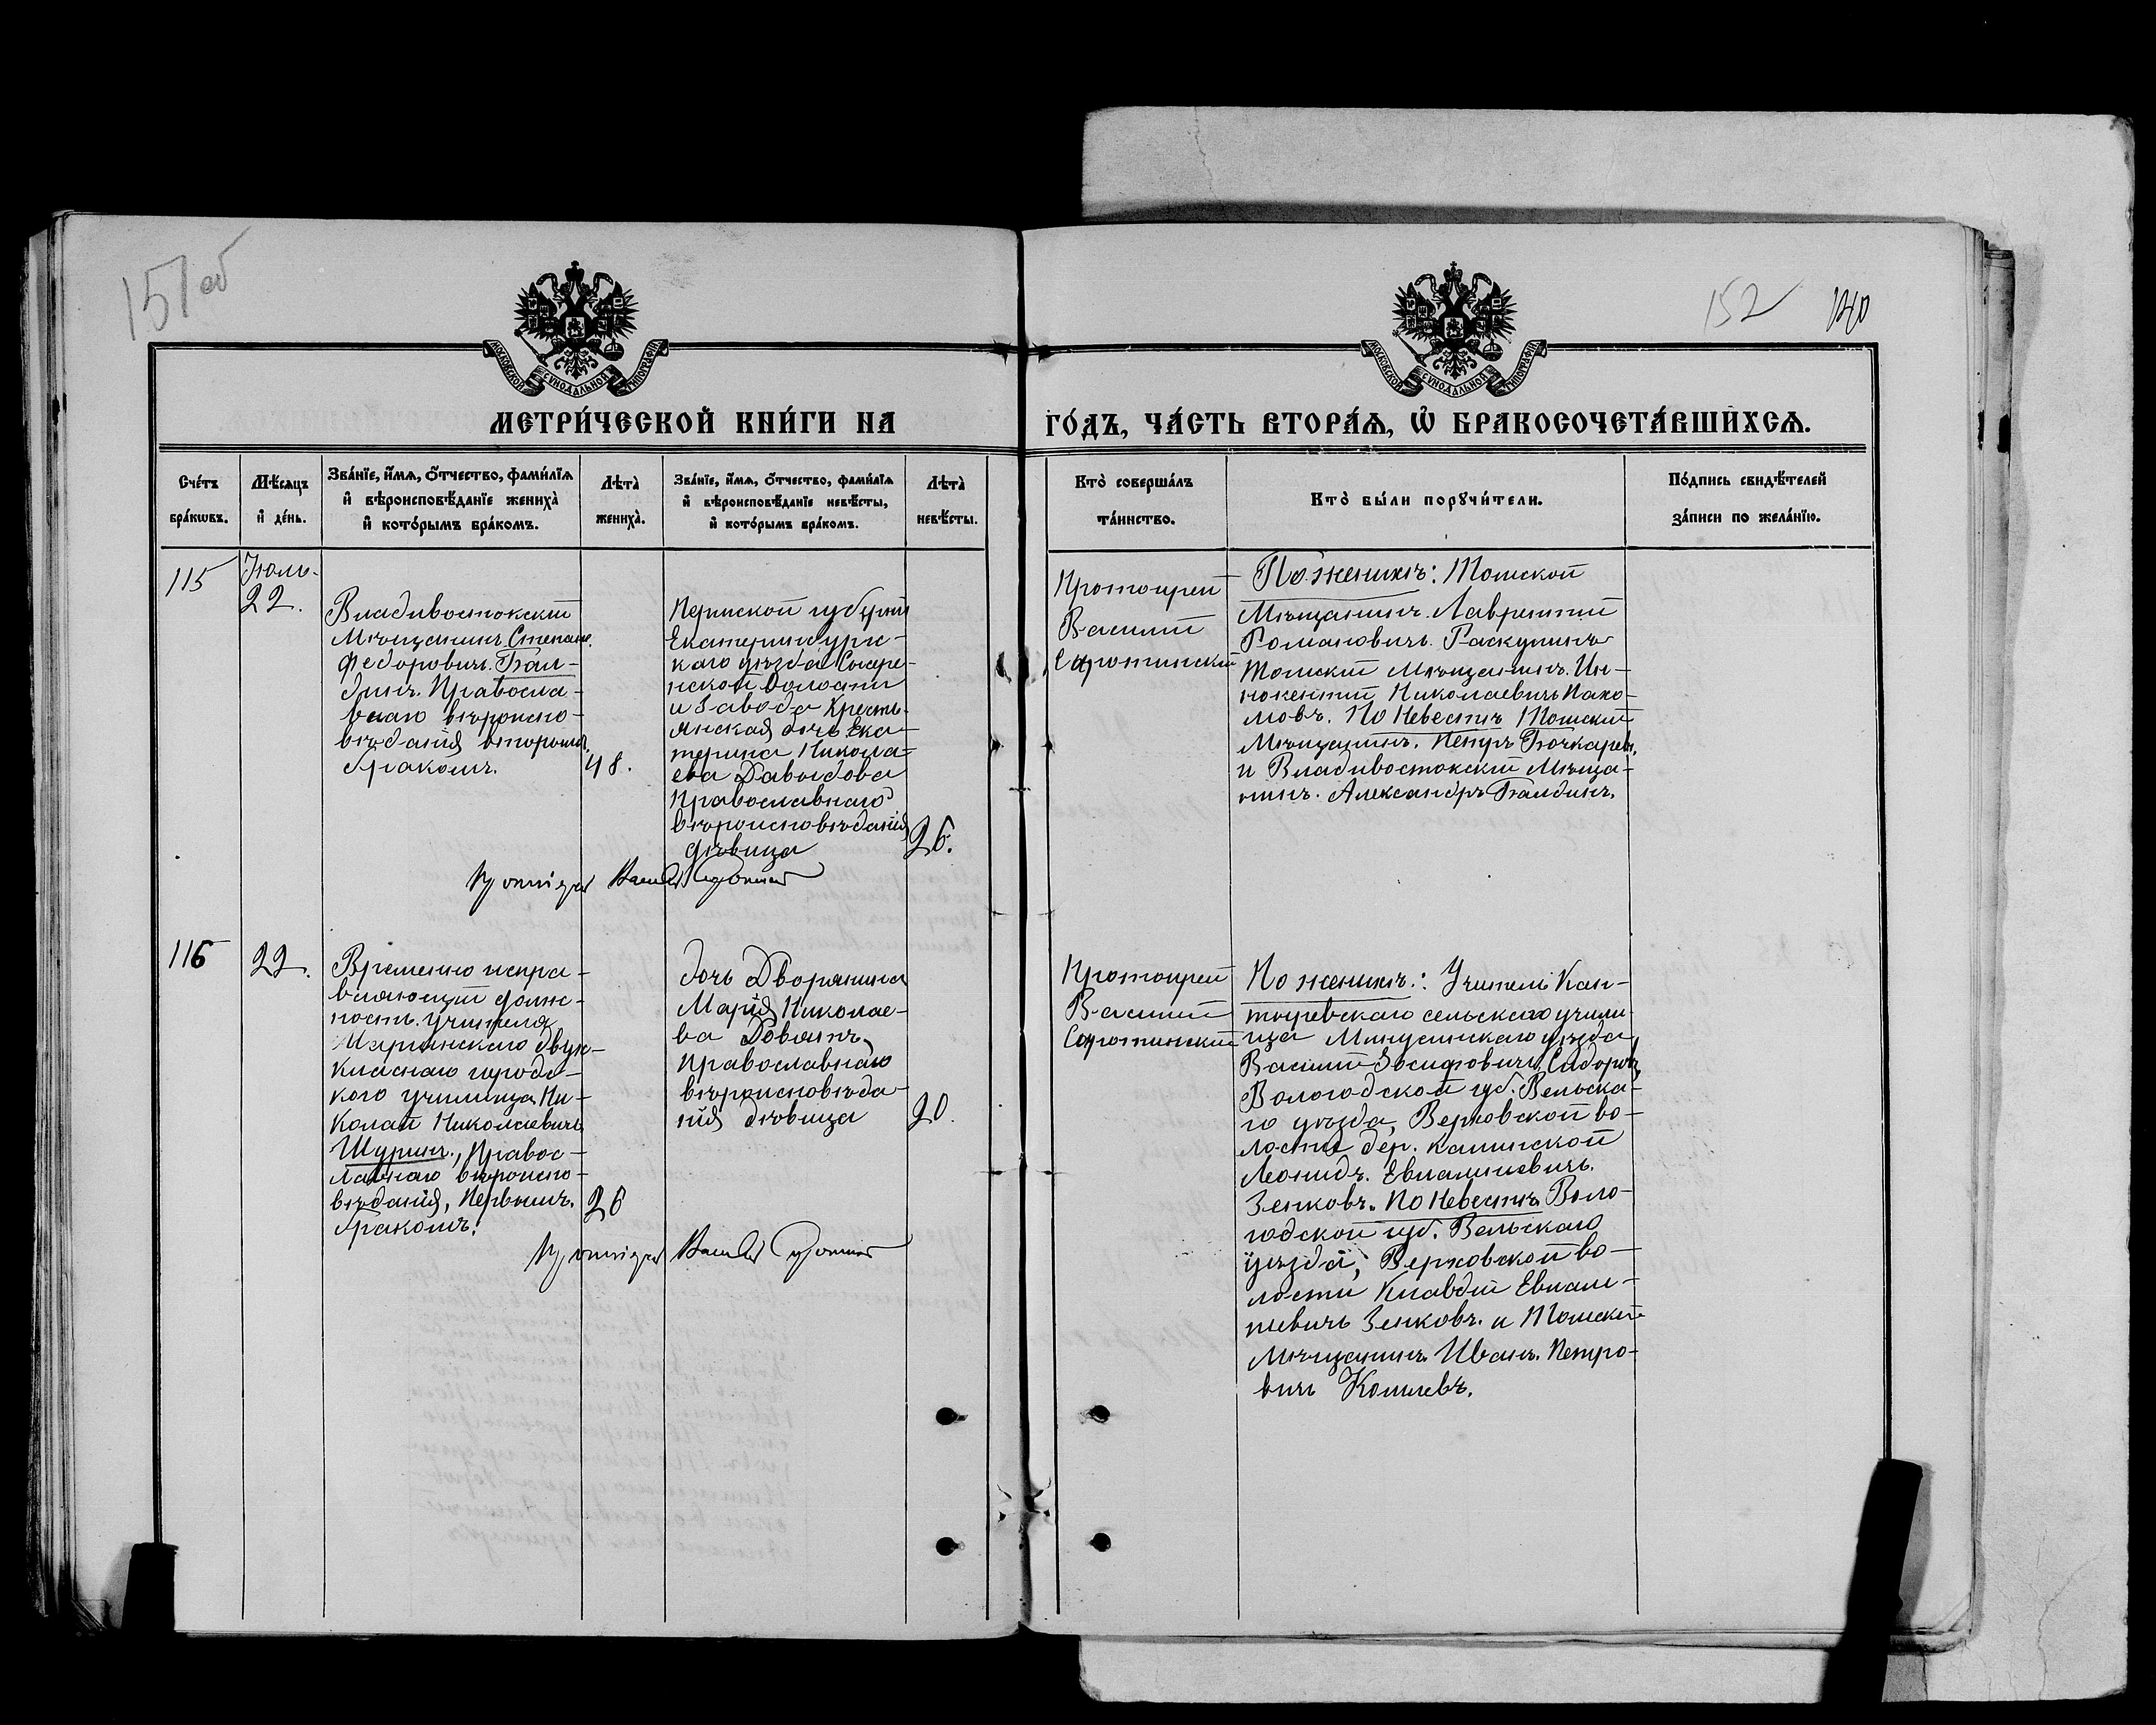 151 об
152
140
МОСКОВСКОЙ СѴНОДАЛЬНОЙ ТИПОГРАФІИ
МОСКОВСКОЙ СѴНОДАЛЬНОЙ ТИПОГРАФІИ
МЕТРИ́ЧЕСКОЙ КНИ́ГИ НА
ГО́ДЪ, ЧА́СТЬ ВТОРА́Ѧ, Ѡ҆ БРАКОСОЧЕТА́ВШИХСѦ.
Сче́тъ
бра́кѡвъ.
Мѣ́сѧцъ
и҆ де́нь.
Зва́нїе, и҆́мѧ, ѻ҆́тчество, фами́лїѧ
и҆ вѣроисповѣ́данїе жениха̀
и҆ кото́рымъ бра́комъ.
Лѣта̀
жениха̀.
Зва́нїе, и҆́мѧ, ѻ҆́тчество, фами́лїѧ
и҆ вѣроисповѣ́данїе невѣ́сты,
и҆ кото́рымъ бра́комъ.
Лѣта̀
невѣ́сты.
Кто̀ соверша́лъ
та́инство.
Кто̀ бы́ли порꙋчи́тели.
По́дпись свидѣ́телей
за́писи по жела́нїю.
115
Іюль.
22.
Владивостокскій
Мѣщанинъ Степанъ
Федоровичъ Бал-
динъ. Правосла-
внаго вѣроиспо-
вѣданія вторымъ
бракомъ.
48.
Пермской губерніи
Екатеринбургс-
каго уѣзда Сысер-
нской Волости
и Завода Кресть-
янская дочь Ека-
терина Никола-
ева Давыдова
Православнаго
вѣроисповѣданія
дѣвица
26.
Протоіерей
Василій
Сиротинскій
По женихѣ: Томской
Мѣщанинъ Лаврентій
Романовичъ Раскупинъ
Томскій Мѣщанинъ Ин-
нокентій Николаевичъ Пахо-
мовъ. По Невестѣ Томскій
Мѣщанинъ. Петръ Бочкаревъ.
и Владивостокскій Мѣща-
нинъ. Александръ Балдинъ.
Протоіерей Василій Сиротинскій
116
22.
Временно испра-
вляющій долж-
ность учителя
Маріинскаго двух-
класнаго городс-
кого училища Ни-
колай Николаевичъ
Шуринъ., Правос-
лавнаго вѣроиспо-
вѣданія, Первымъ.
бракомъ.
26
Дочь Дворянина
Марія Николае-
ва Довялтъ
Православнаго
вѣроисповѣда-
нія дѣвица
20.
Протоіерей
Василій
Сиротинскій
По женихѣ: Учитель Кан-
тыревскаго сельскаго учили-
ща Минусинскаго уѣзда
Василій Іосифовичъ Сидоровъ,
Вологодской губ. Вельска-
го уѣзда, Верховской во-
лости дер. Калинской
Леонидъ. Евлампіевичъ.
Зенковъ. По Невестѣ Воло-
годской губ. Вельскаго
уѣзда, Верховской во-
лости Клавдій Евлам-
піевичъ Зенковъ. и Томскій
Мѣщанинъ Иванъ. Петро-
вичъ Копылевъ.
Протоіерей Василій Сиротинскій